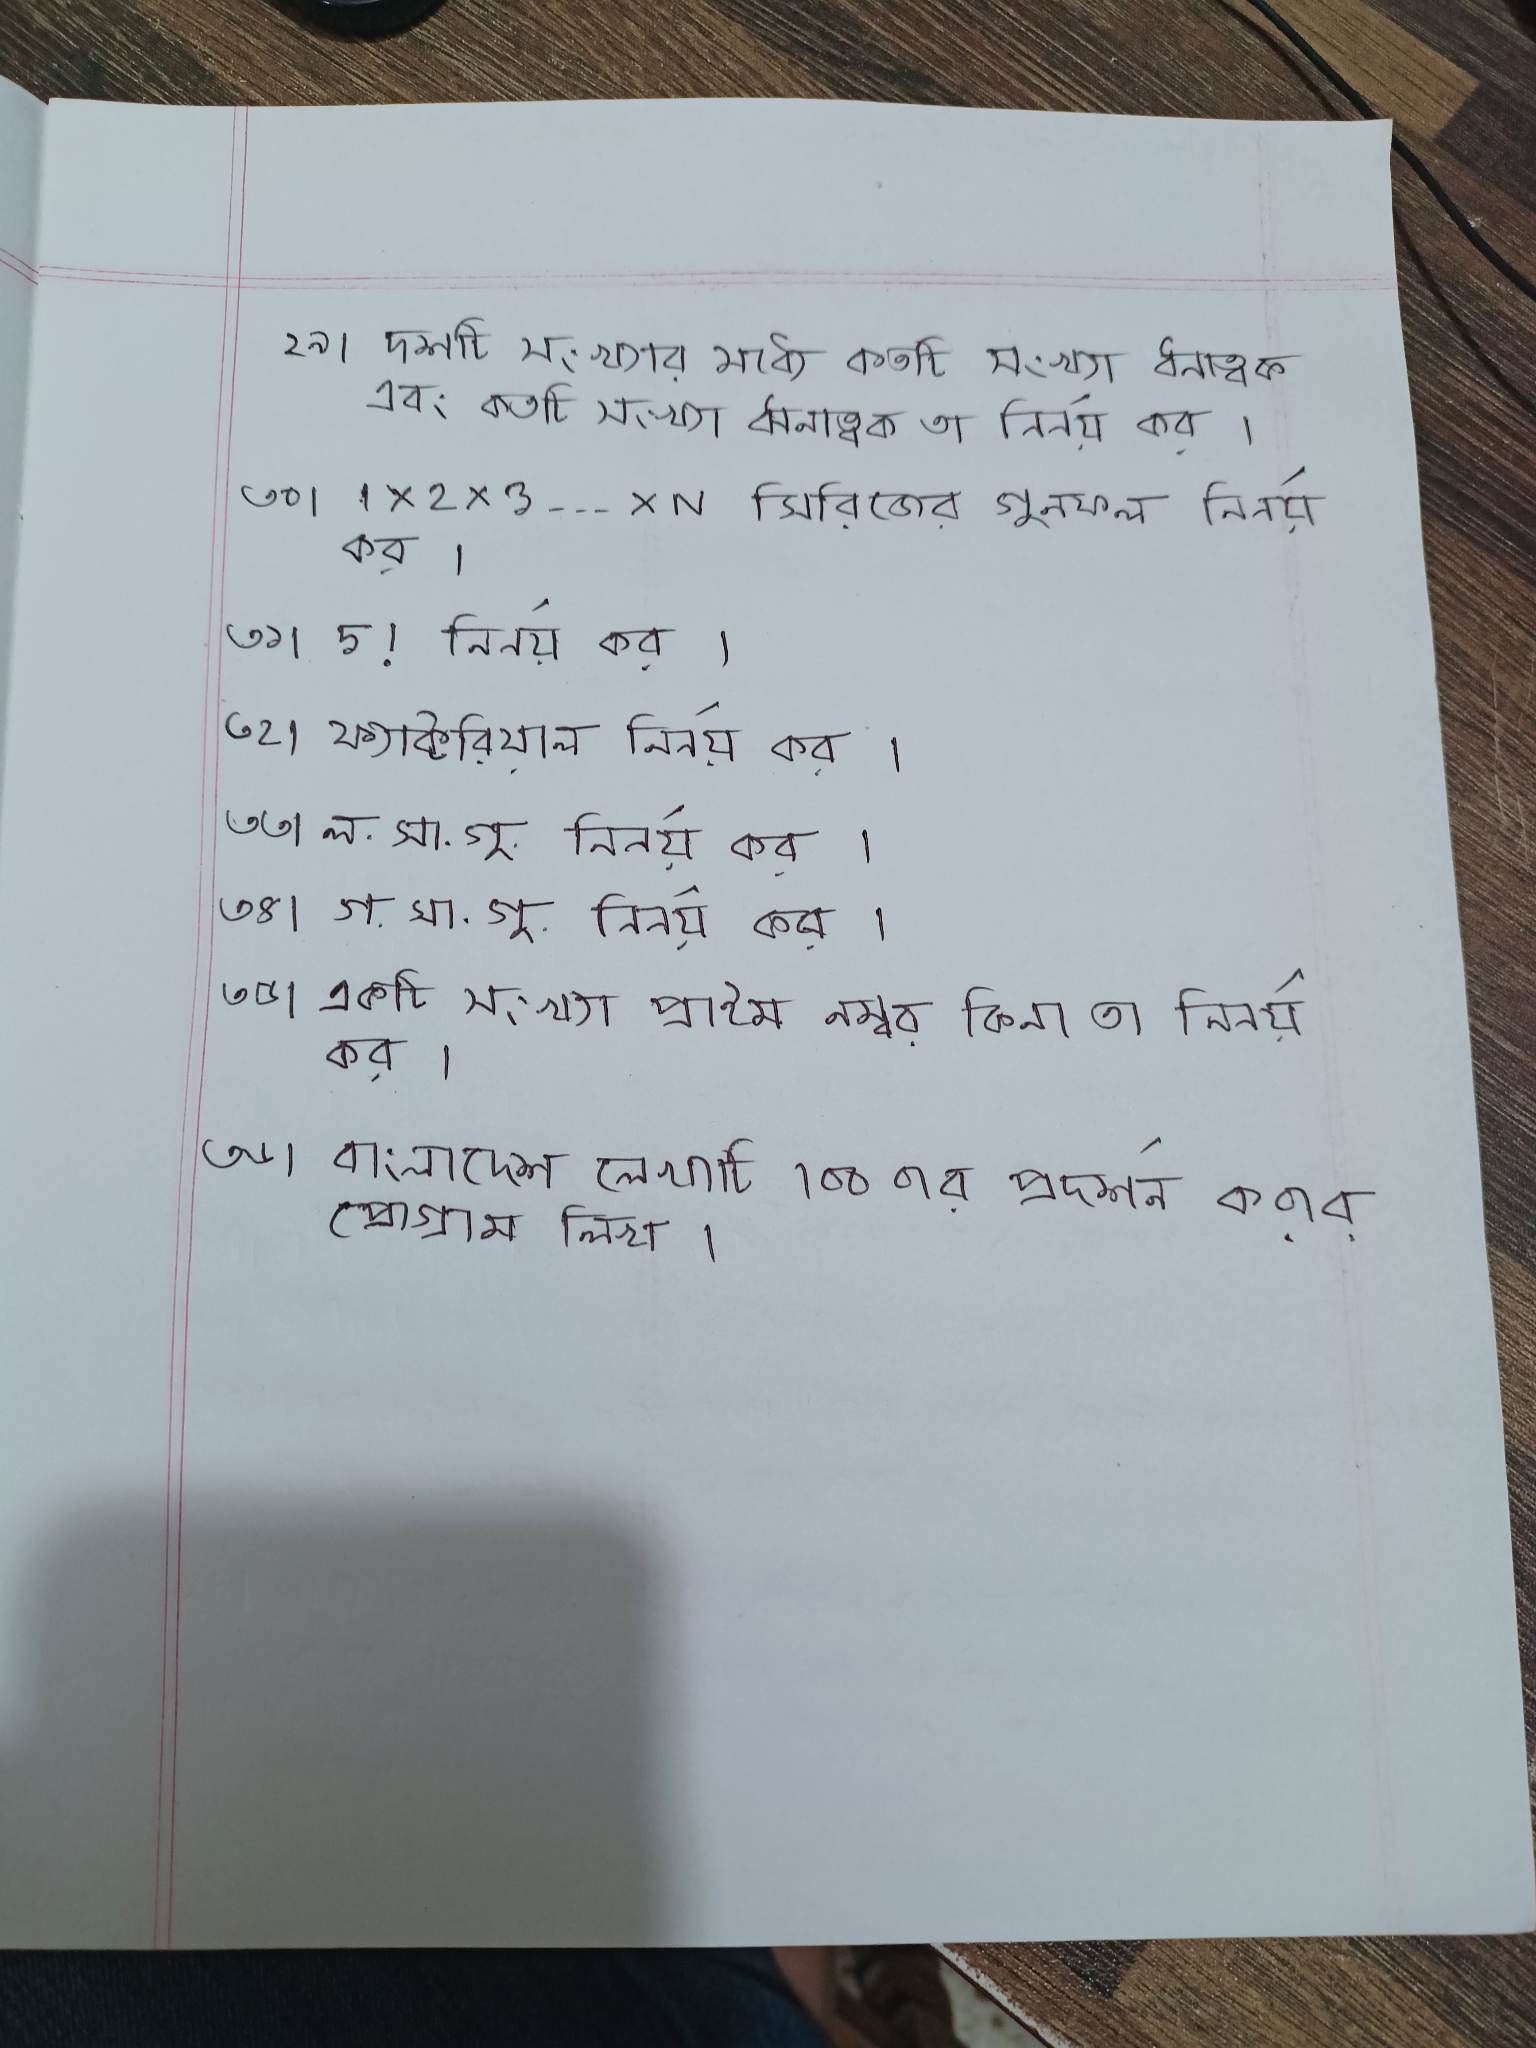 ২৯। দশটি সংখ্যার মধ্যে কতটি সংখ্যা ধনাত্বক
এবং কতটি সংখ্যা ঋনাত্বক তা নির্নয় কর ।
৩০। 1 × 2 × 3 --- × N সিরিজের গুনফল নির্নয়
কর ।
৩১। ৮! নির্নয় কর ।
৩২। ফ্যাক্টরিয়াল নির্নয় কর ।
৩৩। ল. সা. গু. নির্নয় কর ।
৩৪। গ. সা. গু. নির্নয় কর ।
৩৫। একটি সংখ্যা প্রাইম নম্বর কিনা তা নির্নয়
কর ।
৩৬। বাংলাদেশ লেখাটি 100 বার প্রদর্শন করার
প্রোগ্রাম লিখ ।